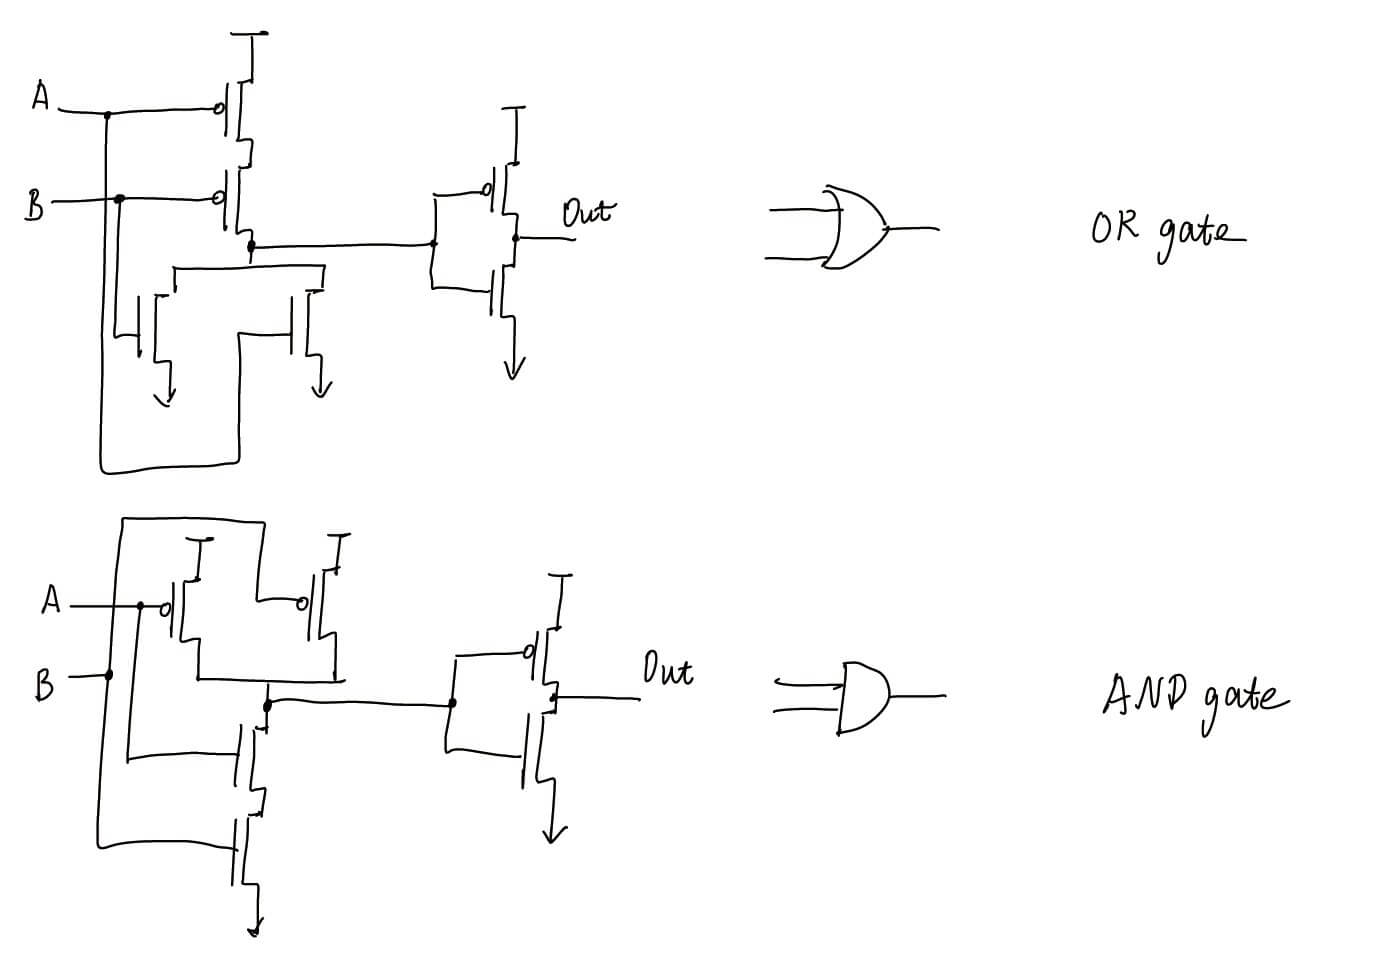 A
B
Out
OR gate
A
B
Out
AND gate